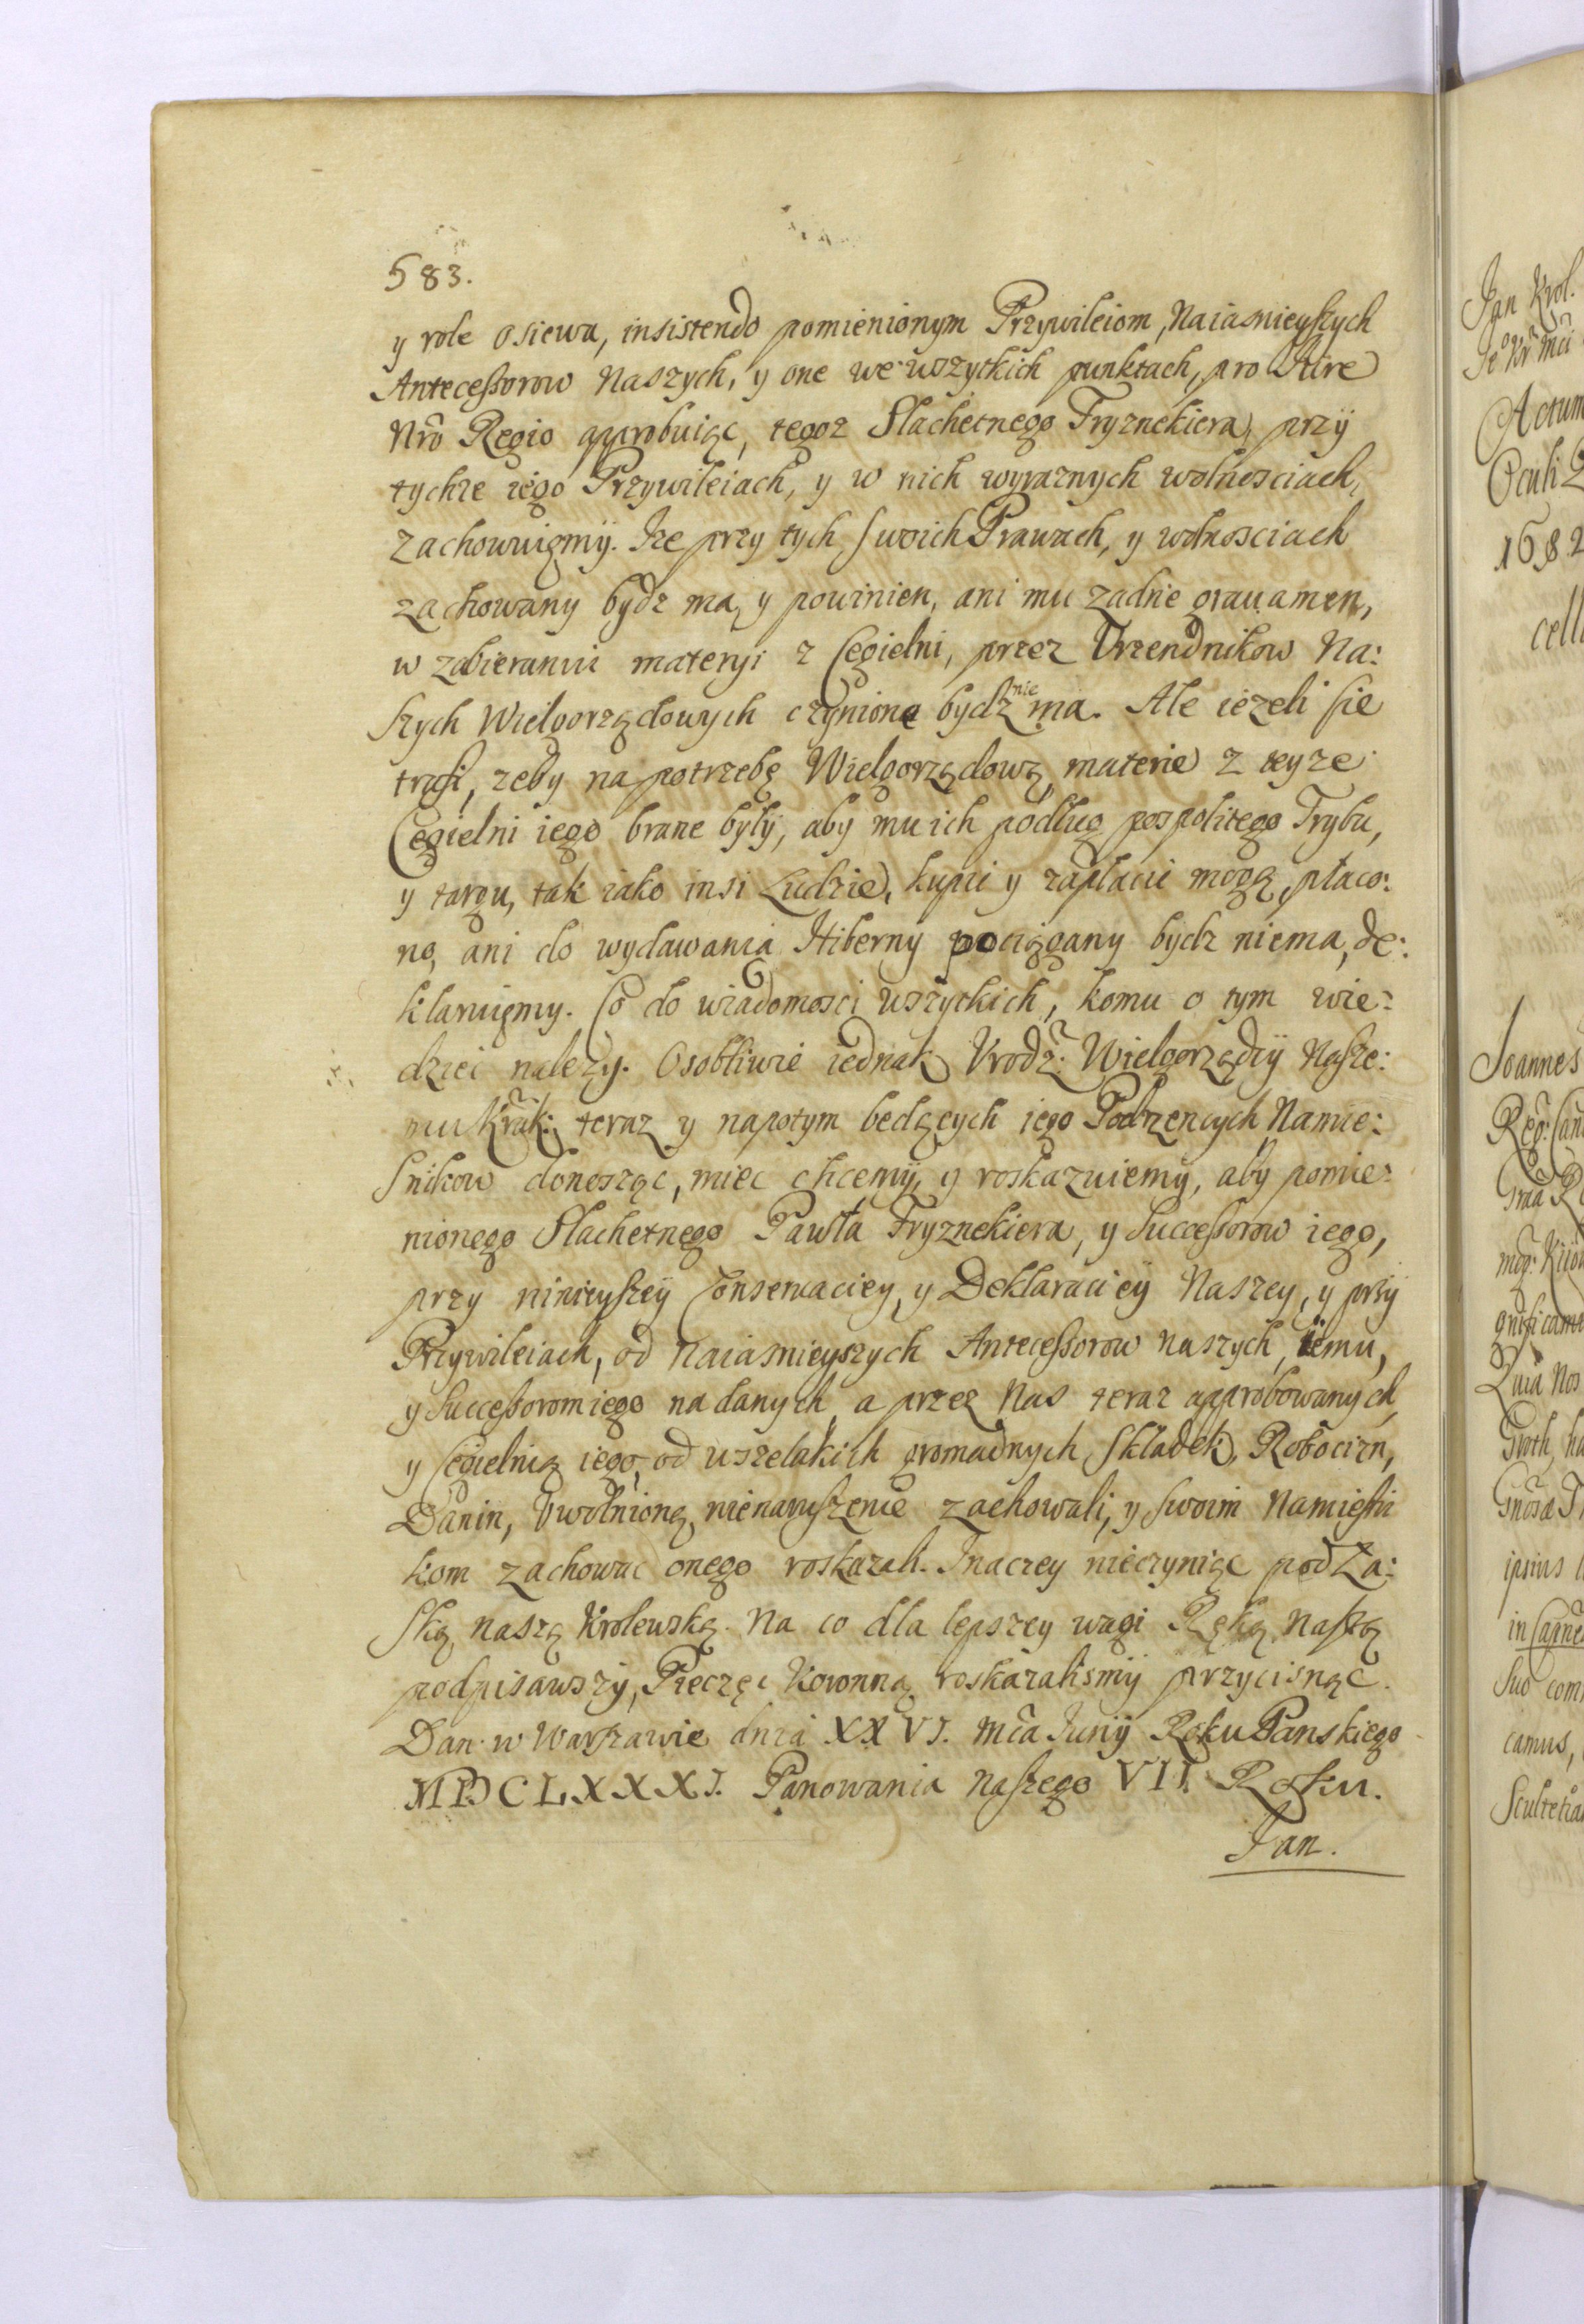 583.
y role osiewa, insistendo pomienionym Przywileiom, Naiasnieyszych
Antecessorow Naszych, y one we wszytkich punktach, pro Iure
Nrõ Regio approbuiąc, tegoz Slachetnego Fryznekiera, przÿ
tychze iego Przywileiach, y w nich wyraznych wolnosciach,
zachowuięmÿ. Ize przy tych swoich Prawach, y wolnosciach
zachowany bydz ma, y powinien, ani mu zadne grauamen,
w zabieraniu materyi z Cegielni, przez Vrzendnikow Na:
szych Wielgorządowych czynione bydz nie ma. Ale iezeli sie
trafi, zeby na potrzebę Wielgorządową, materie z teyze
Cegielni iego brane byłÿ, aby mu ich podług pospolitego Trybu,
y targu, tak iako insi Ludzie, kupic y zapłacic mogą, płaco:
no, ani do wydawania Hiberny pociągany bydz niema, de:
klaruięmy. Co do wiadomosci wszytkich, komu o tym wie:
dziec nalezy. Osobliwie iednak Vrodz: Wielgorządcÿ Nasze:
mu Krak: teraz y napotym będących iego Podrzencych Namie:
snikow donosząc, miec chcemÿ, y roskazuiemÿ, aby pomie:
nionego Slachetnego Pawła Fryznekiera, y Successorow iego,
przy ninieyszeÿ Conserwaciey, y Deklaracieÿ Naszey, y przÿ
Przywileiach, od Naiasnieyszych Antecessorow naszych, iemu,
y Successorom iego nadanych, a przez Nas teraz approbowanych,
y Cegielnią iego, od wszelakich gromadnych Skladek, Robocizn,
Danin, Vwolnioną, nienaruszenie zachowali, y swoim Namiesni
kom zachowac onego roskazali. Inaczey nieczyniąc pod Ła:
ską naszą Krolewską. Na co dla lepszey wagi Ręką naszą
podpisawszÿ, Pieczęc Koronną roskazalismÿ przycisnąc.
Dan w Warszawie dnia XXVI. Mca Junÿ Roku Panskiego
MDCLXXXI. Panowania naszego VII. Roku.
Jan.
Jan Krol.
Actum
Oculi
1682
Joannes
Reg:
mag: Kiio
gnificam
Quia Nos
ipsius
in
Suo com
camus,
Sculteti